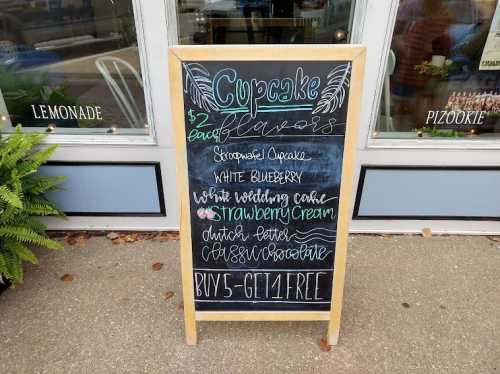 Cupcake
$2 each
flavors
Stroopwafel Cupcake
WHITE BLUEBERRY
white wedding cake
Strawberry Cream
dutch letter
classic chocolate
BUY 5 - GET 1 FREE
LEMONADE
PIZOOKIE